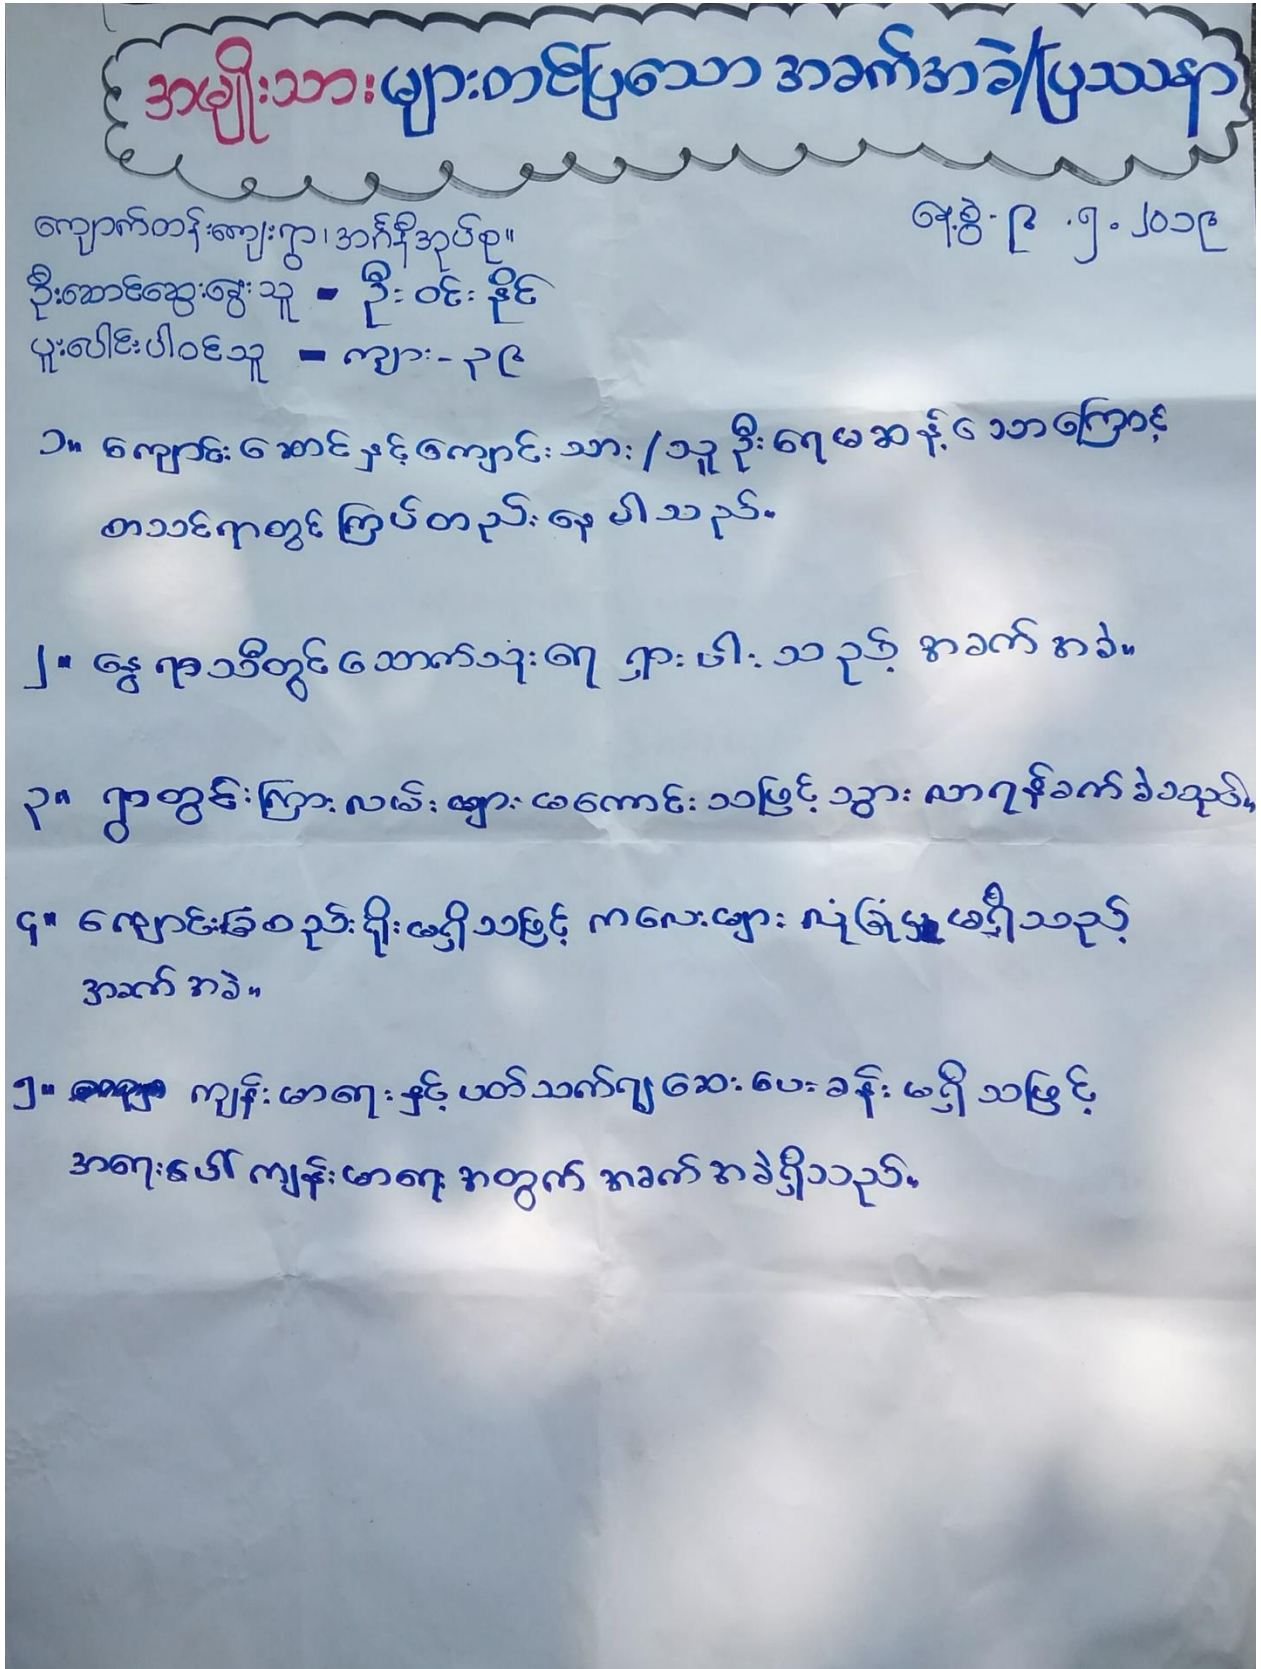 အမျိုးသားများတင်ပြသော အခက်အခဲ/ပြဿနာ
နေ့စွဲ - ၉ . ၅ . ၂၀၁၉
ကျောက်တန်းကျေးရွာ၊ အင်္ဂနီအုပ်စု။
ဦးဆောင်ဆွေးနွေးသူ - ဦးဝင်းနိုင်
ပူးပေါင်းပါဝင်သူ - ကျား - ၃၉
၁။ ကျောင်းဆောင်နှင့်ကျောင်းသား/သူဦးရေမဆန့်သောကြောင့်
စာသင်ရာတွင်ကြပ်တည်းနေပါသည်။
၂။ နွေရာသီတွင်သောက်သုံးရေ ရှားပါးသည့် အခက်အခဲ။
၃။ ရွာတွင်းကြားလမ်းများမကောင်းသဖြင့် သွားလာရန်ခက်ခဲသည်။
၄။ ကျောင်းခြံစည်းရိုးမရှိသဖြင့် ကလေးများ လုံခြုံမှုမရှိသည့်
အခက်အခဲ။
၅။ ကျန်းမာရေးနှင့်ပတ်သက်၍ဆေးပေးခန်းမရှိသဖြင့်
အရေးပေါ်ကျန်းမာရေးအတွက် အခက်အခဲရှိသည်။